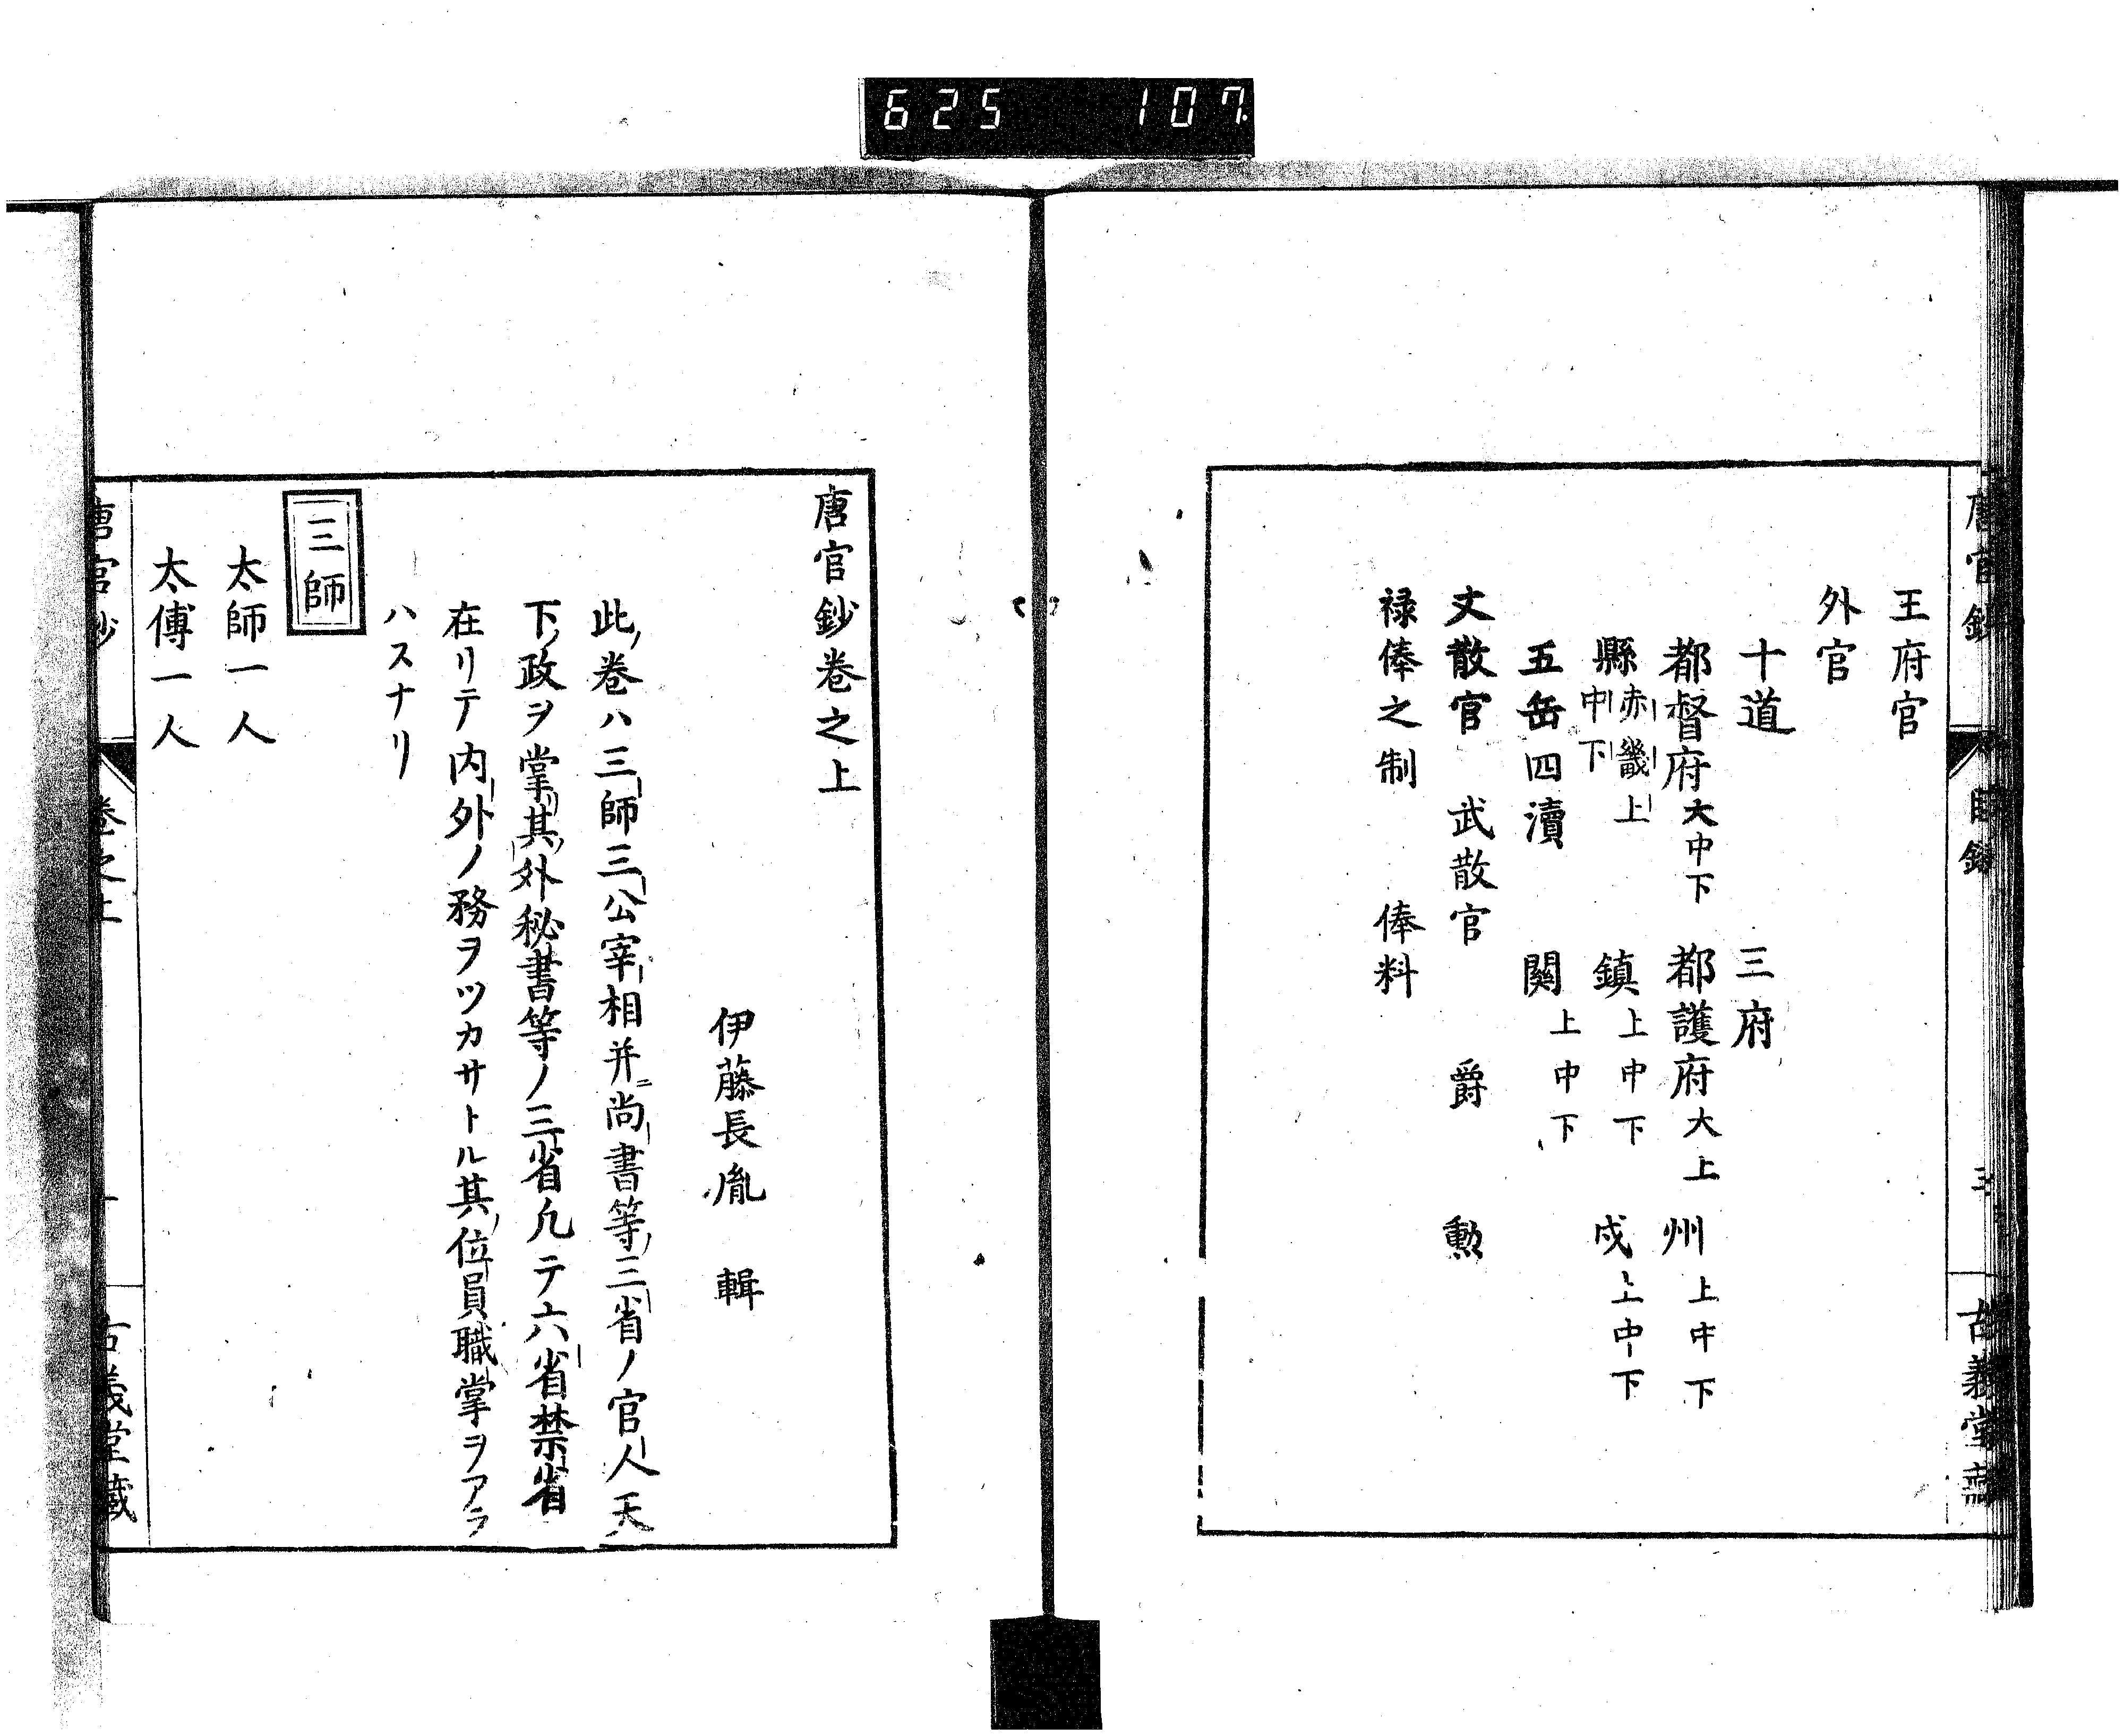 625 107
王府官
外官
十道 三府
都督府大中下 都護府大上 州上中下
縣赤畿上中下 鎮上中下 戍上中下
五岳四瀆 關上中下
文散官 武散官 爵 勲
禄俸之制 俸料
唐官鈔巻之上
伊藤長胤 輯
此ノ巻ハ三師三公宰相并ニ尚書等ノ三省ノ官人天
下ノ政ヲ掌リ其ノ外秘書等ノ三省凢テ六省禁省
在リテ内外ノ務ヲツカサトル其ノ位員職掌ヲアラ
ハスナリ
三師
太師一人
太傅一人
唐官鈔 巻之上 一 古義堂蔵